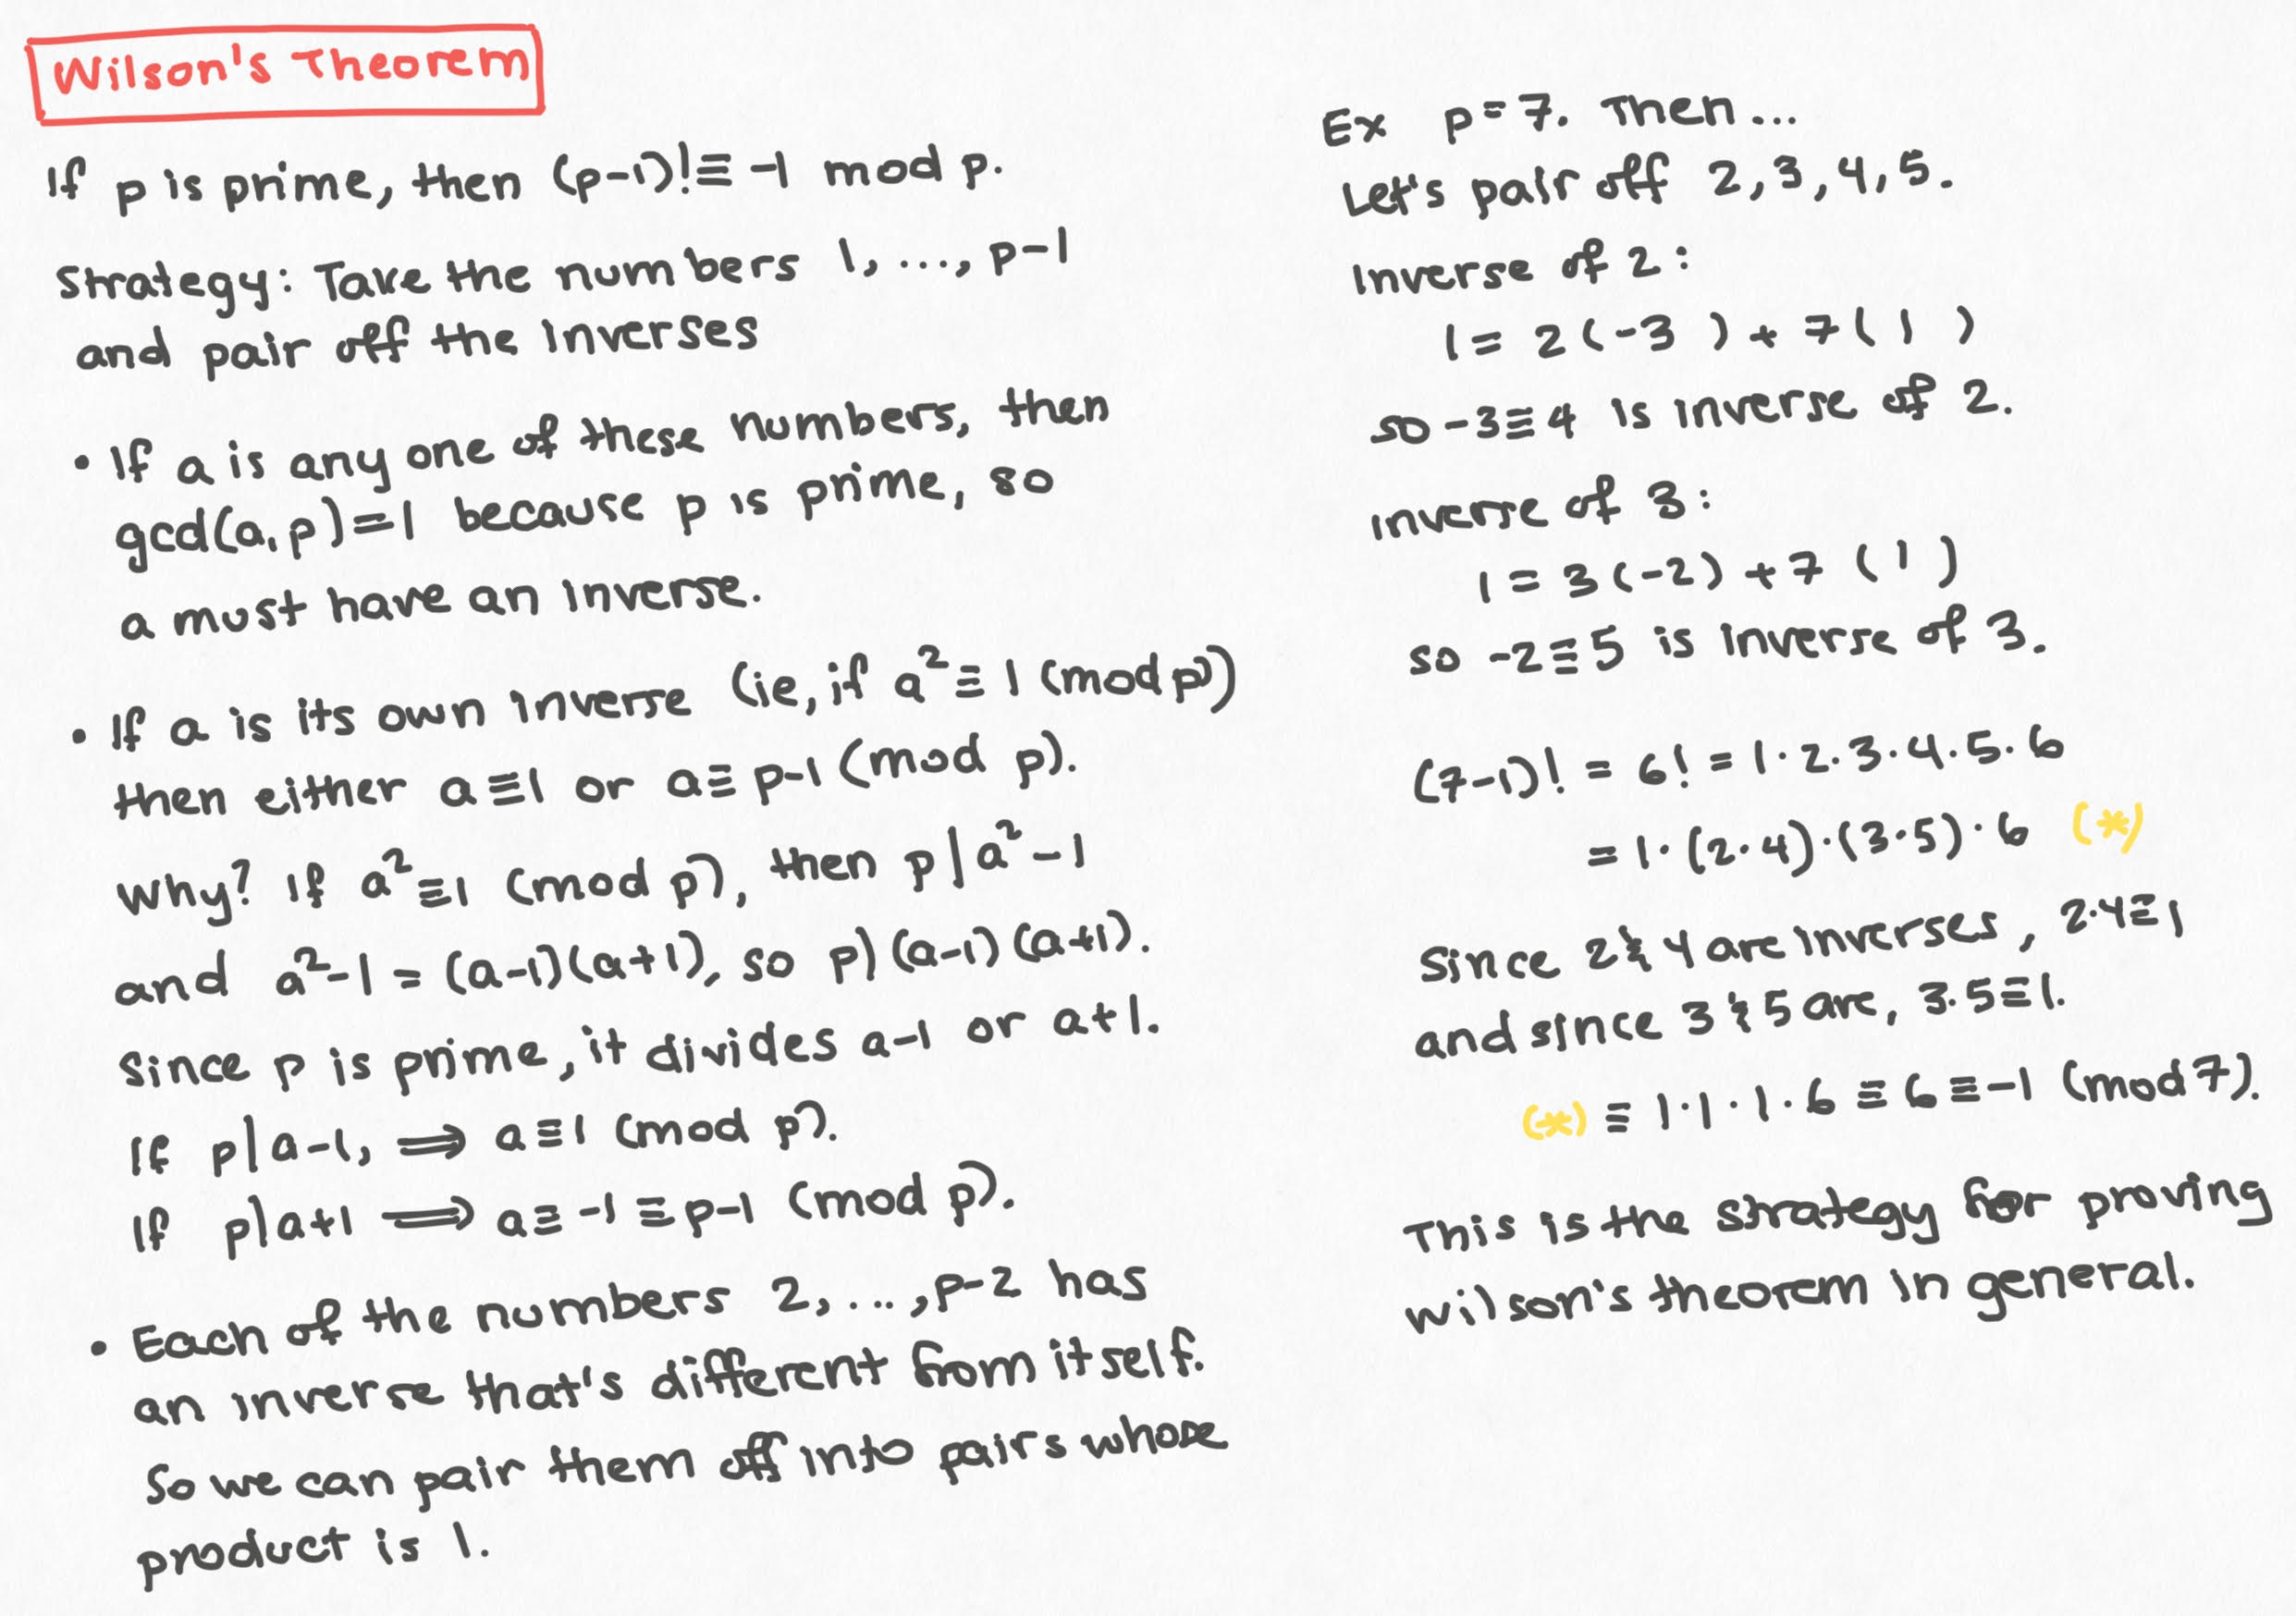 Wilson's Theorem
If p is prime, then (p-1)! ≡ -1 mod p.
Strategy: Take the numbers 1, ..., p-1
and pair off the inverses
• If a is any one of these numbers, then
gcd(a,p)=1 because p is prime, so
a must have an inverse.
• If a is its own inverse (ie, if a² ≡ 1 (mod p))
then either a ≡ 1 or a ≡ p-1 (mod p).
Why? If a² ≡ 1 (mod p), then p | a² - 1
and a² - 1 = (a-1)(a+1), so p | (a-1)(a+1).
Since p is prime, it divides a-1 or a+1.
If p | a-1, ⟹ a ≡ 1 (mod p).
If p | a+1 ⟹ a ≡ -1 ≡ p-1 (mod p).
• Each of the numbers 2, ..., p-2 has
an inverse that's different from itself.
So we can pair them off into pairs whose
product is 1.
Ex p = 7. Then ...
Let's pair off 2, 3, 4, 5.
Inverse of 2:
1 = 2(-3) + 7(1)
so -3 ≡ 4 is inverse of 2.
inverse of 3:
1 = 3(-2) + 7(1)
so -2 ≡ 5 is inverse of 3.
(7-1)! = 6! = 1·2·3·4·5·6
= 1·(2·4)·(3·5)·6 (*)
Since 2 & 4 are inverses, 2·4 ≡ 1
and since 3 & 5 are, 3·5 ≡ 1.
(*) ≡ 1·1·1·6 ≡ 6 ≡ -1 (mod 7).
This is the strategy for proving
Wilson's theorem in general.